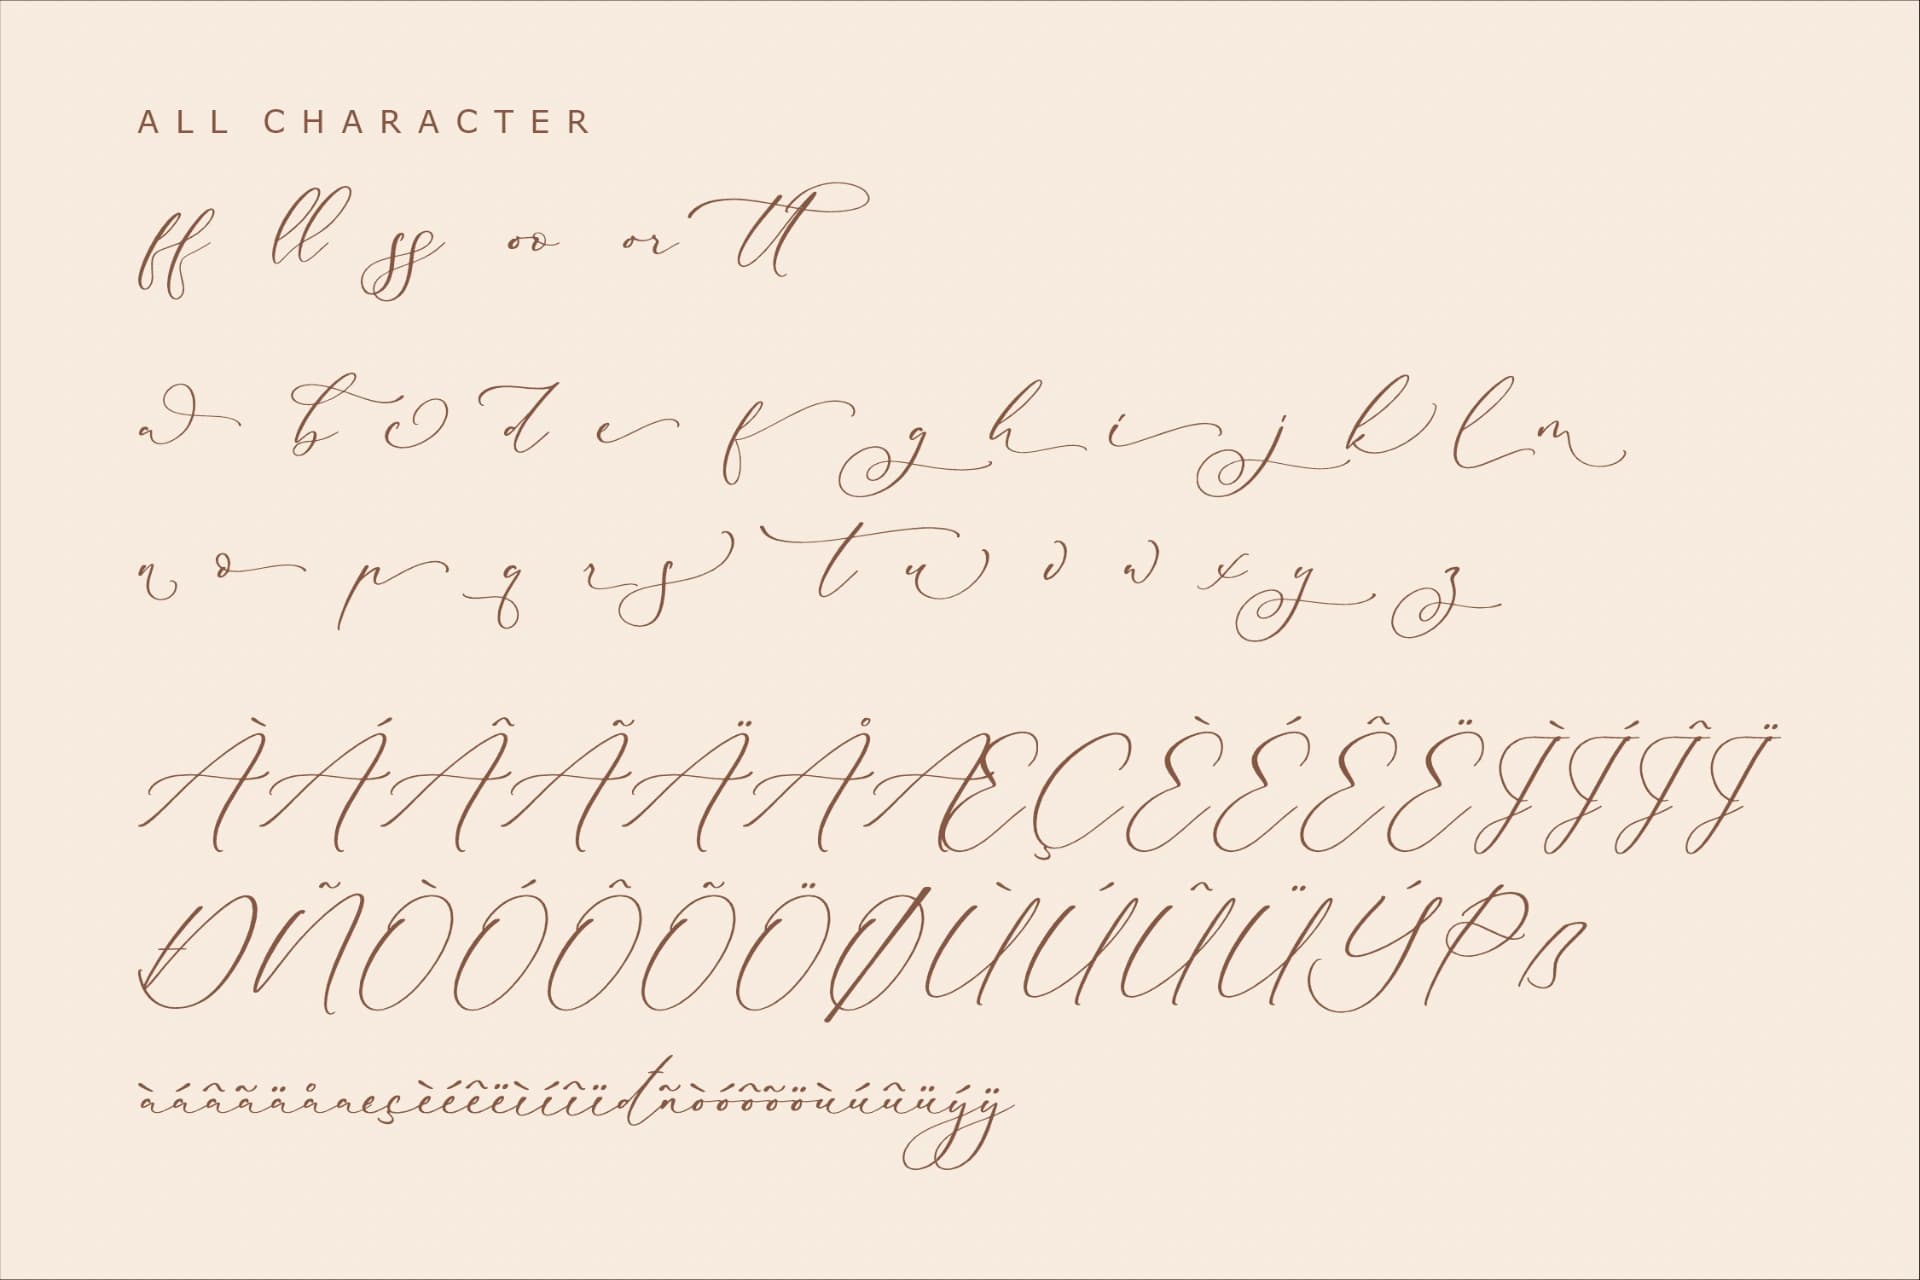 ALL CHARACTER
ff ll ss oo or tt
a b c d e f g h i j k l m
n o p q r s t u v w x y z
À Á Â Ã Ä Å Æ Ç È É Ê Ë Ì Í Î Ï
Ð Ñ Ò Ó Ô Õ Ö Ø Ù Ú Û Ü Ý Þ ß
àáâãäåæçèéêëìíîïđñòóôõöùúûüýÿ